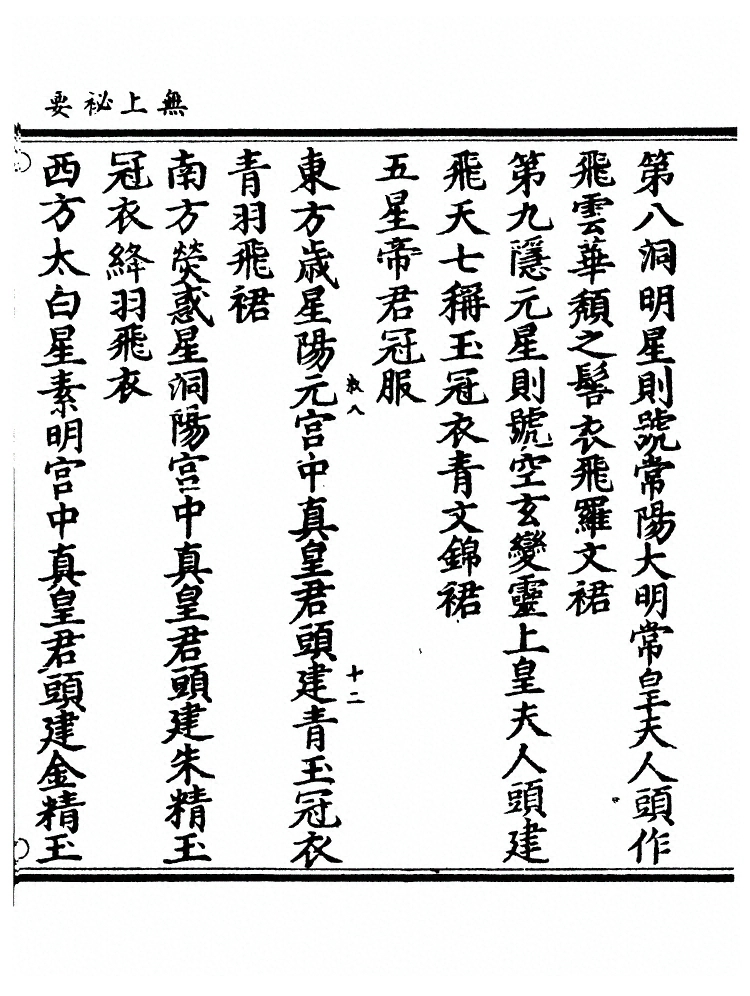 無上祕要
第八洞明星則號常陽大明常皇夫人頭作
飛雲華頹之髻衣飛羅文裙
第九隱元星則號空玄變靈上皇夫人頭建
飛天七稱玉冠衣青文錦裙
五星帝君冠服
叔八
十二
東方歲星陽元宮中真皇君頭建青玉冠衣
青羽飛裙
南方熒惑星洞陽宮中真皇君頭建朱精玉
冠衣絳羽飛衣
西方太白星素明宮中真皇君頭建金精玉